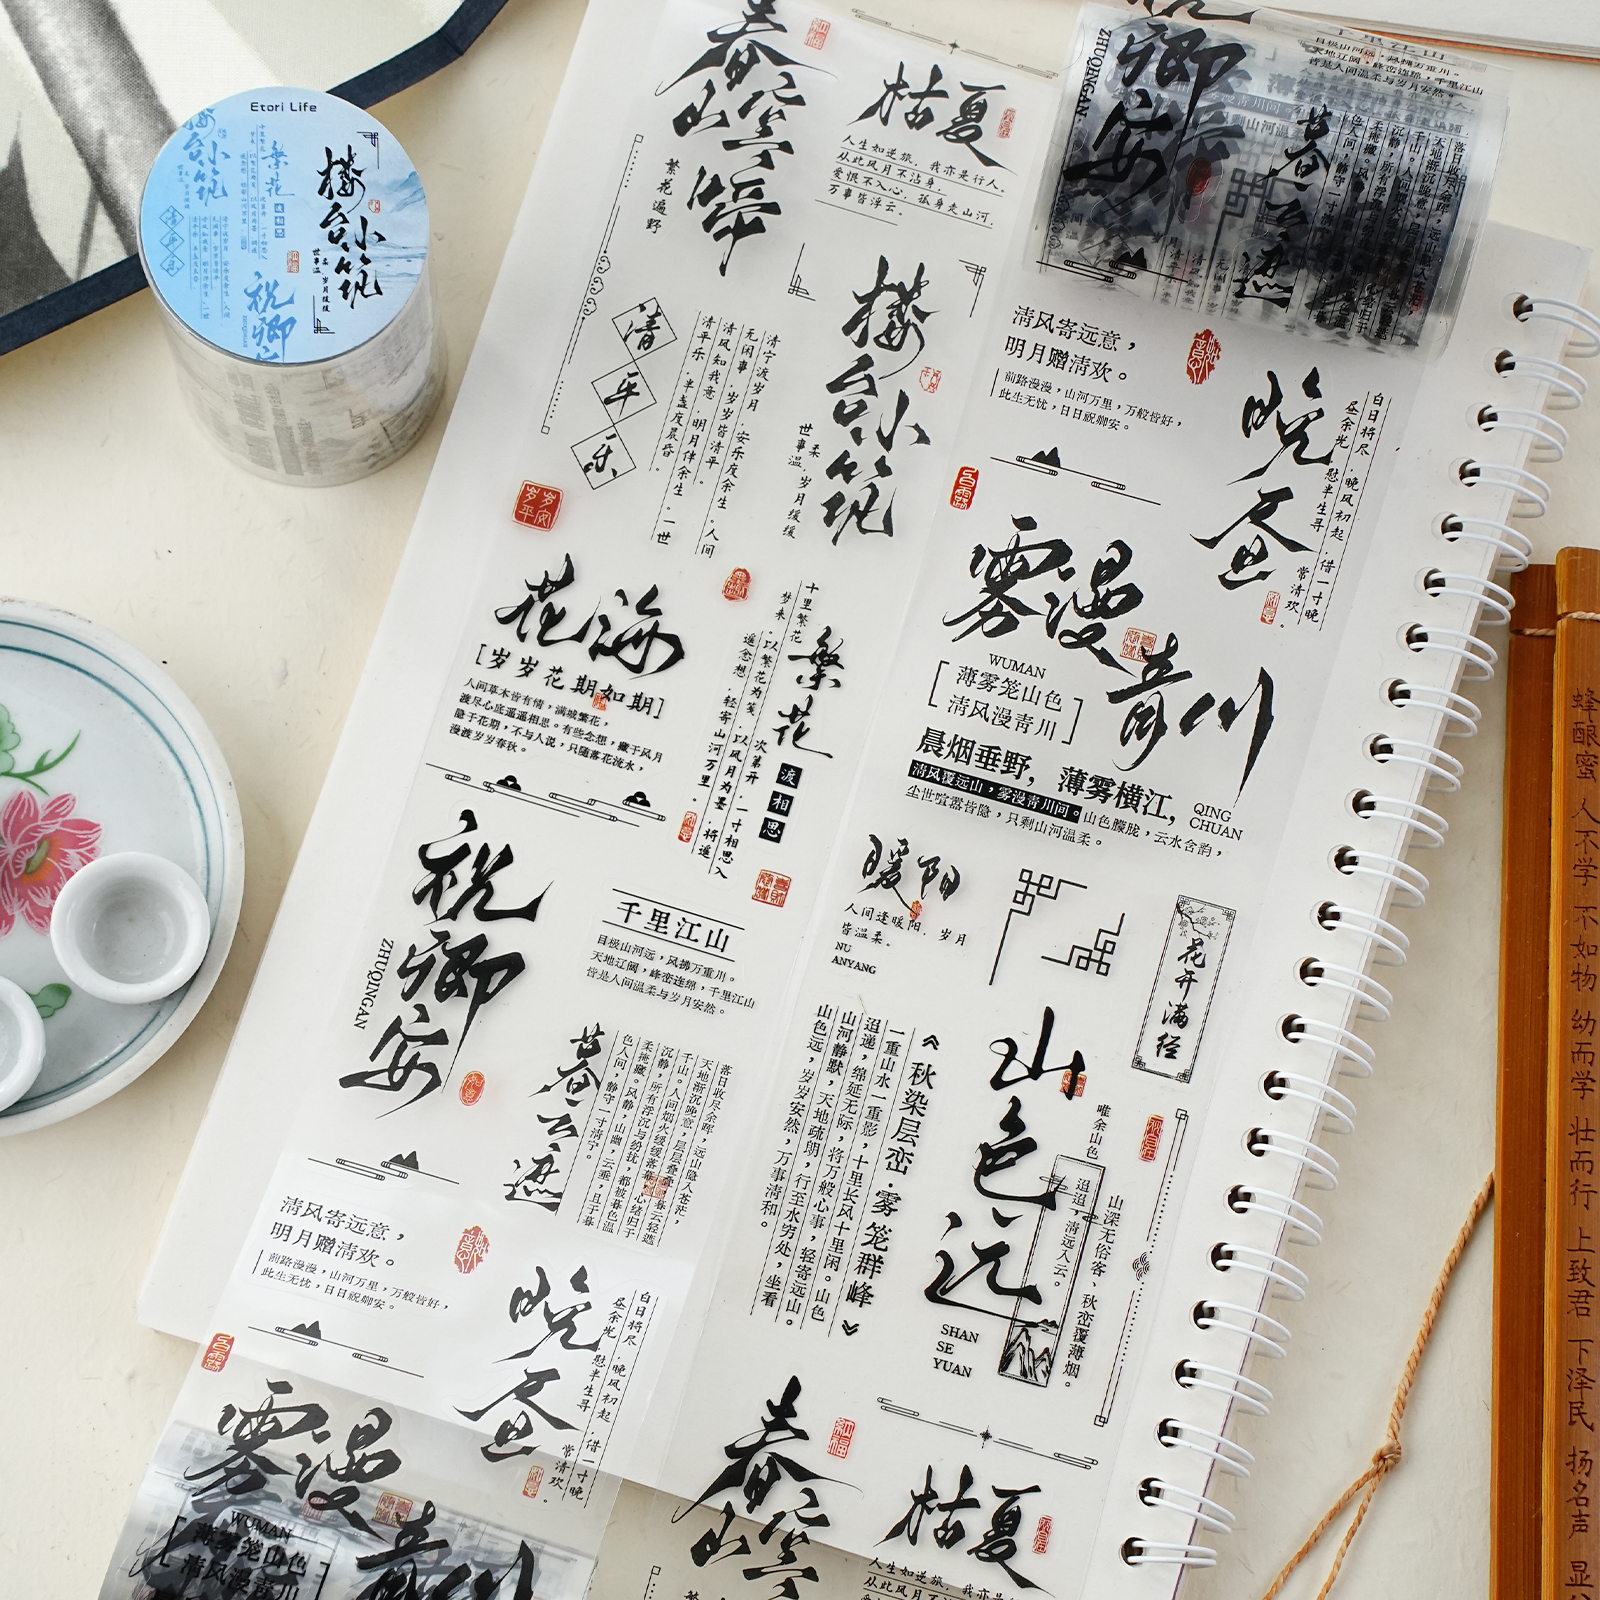 Etori Life
楼台小筑
繁花
清平乐
祝卿
春山空濛
繁花遍野
枯夏
人生如逆旅，我亦是行人。
从此风月不沾身，
爱恨不入心，孤身走山河，
万事皆浮云。
清平乐
清宁渡岁月，安乐度余生。人间
无闲事，岁岁皆清平。
清风知我意，明月伴余生。一世
清平乐，半盏度晨昏。
岁安
岁平
楼台小筑
柔，岁月缓缓
世事温
花海
[岁岁花期如期]
人间草木皆有情，满城繁花，
渡尽心底遥遥相思。有些念想，藏于风月
隐于花期，不与人说，只随落花流水，
漫渡岁岁春秋。
繁花
渡相思
十里繁花 次第开，一寸相思入
梦来，以繁花为笺，以风月为墨，将遥
遥念想，轻寄山河万里。
祝卿安
ZHUQINGAN
如意
千里江山
目极山河远，风拂万重川。
天地辽阔，峰峦连绵，千里江山
皆是人间温柔与岁月安然。
暮云遮
落日收尽余晖，远山隐入苍茫，
天地渐沉晚意，层层叠叠暮云轻遮
千山。人间烟火缓缓落幕，心绪归于
沉静，所有浮沉与纷扰，都被暮色温
柔掩藏。风静，山幽，云垂，且于暮
色人间，静守一寸清宁。
清风寄远意，
明月赠清欢。
前路漫漫，山河万里，万般皆好，
此生无忧，日日祝卿安。
晚昼
白日将尽，晚风初起，借一寸晚
昼余光，慰半生寻常清欢。
白露
雾漫青川
WUMAN
薄雾笼山色
清风漫青川
祝卿安
ZHUQINGAN
千里江山
目极山河远，风拂万重川。
天地辽阔，峰峦连绵，千里江山
皆是人间温柔与岁月安然。
暮云遮
清风寄远意，
明月赠清欢。
前路漫漫，山河万里，万般皆好，
此生无忧，日日祝卿安。
晚昼
白日将尽，晚风初起，借一寸晚
昼余光，慰半生寻常清欢。
白露
雾漫青川
WUMAN
[薄雾笼山色
清风漫青川]
晨烟垂野，薄雾横江，
清风覆远山，雾漫青川间。山色朦胧，云水含韵，
尘世喧嚣皆隐，只剩山河温柔。
QING
CHUAN
暖阳
人间逢暖阳，岁月
皆温柔。
NU
ANYANG
花开满径
山色远
SHAN
SE
YUAN
唯余山色
迢迢，清远入云。
山深无俗客，秋峦覆薄烟。
《秋染层峦·雾笼群峰》
一重山水一重影，十里长风十里闲。山色
迢递，绵延无际，将万般心事，轻寄远山。
山河静默，天地疏朗，行至水穷处，坐看
山色远，岁岁安然，万事清和。
春山空
纳福
枯夏
人生如逆旅，我亦是
从此风月不
蜂酿蜜 人不学 不如物 幼而学 壮而行 上致君 下泽民 扬名声 显